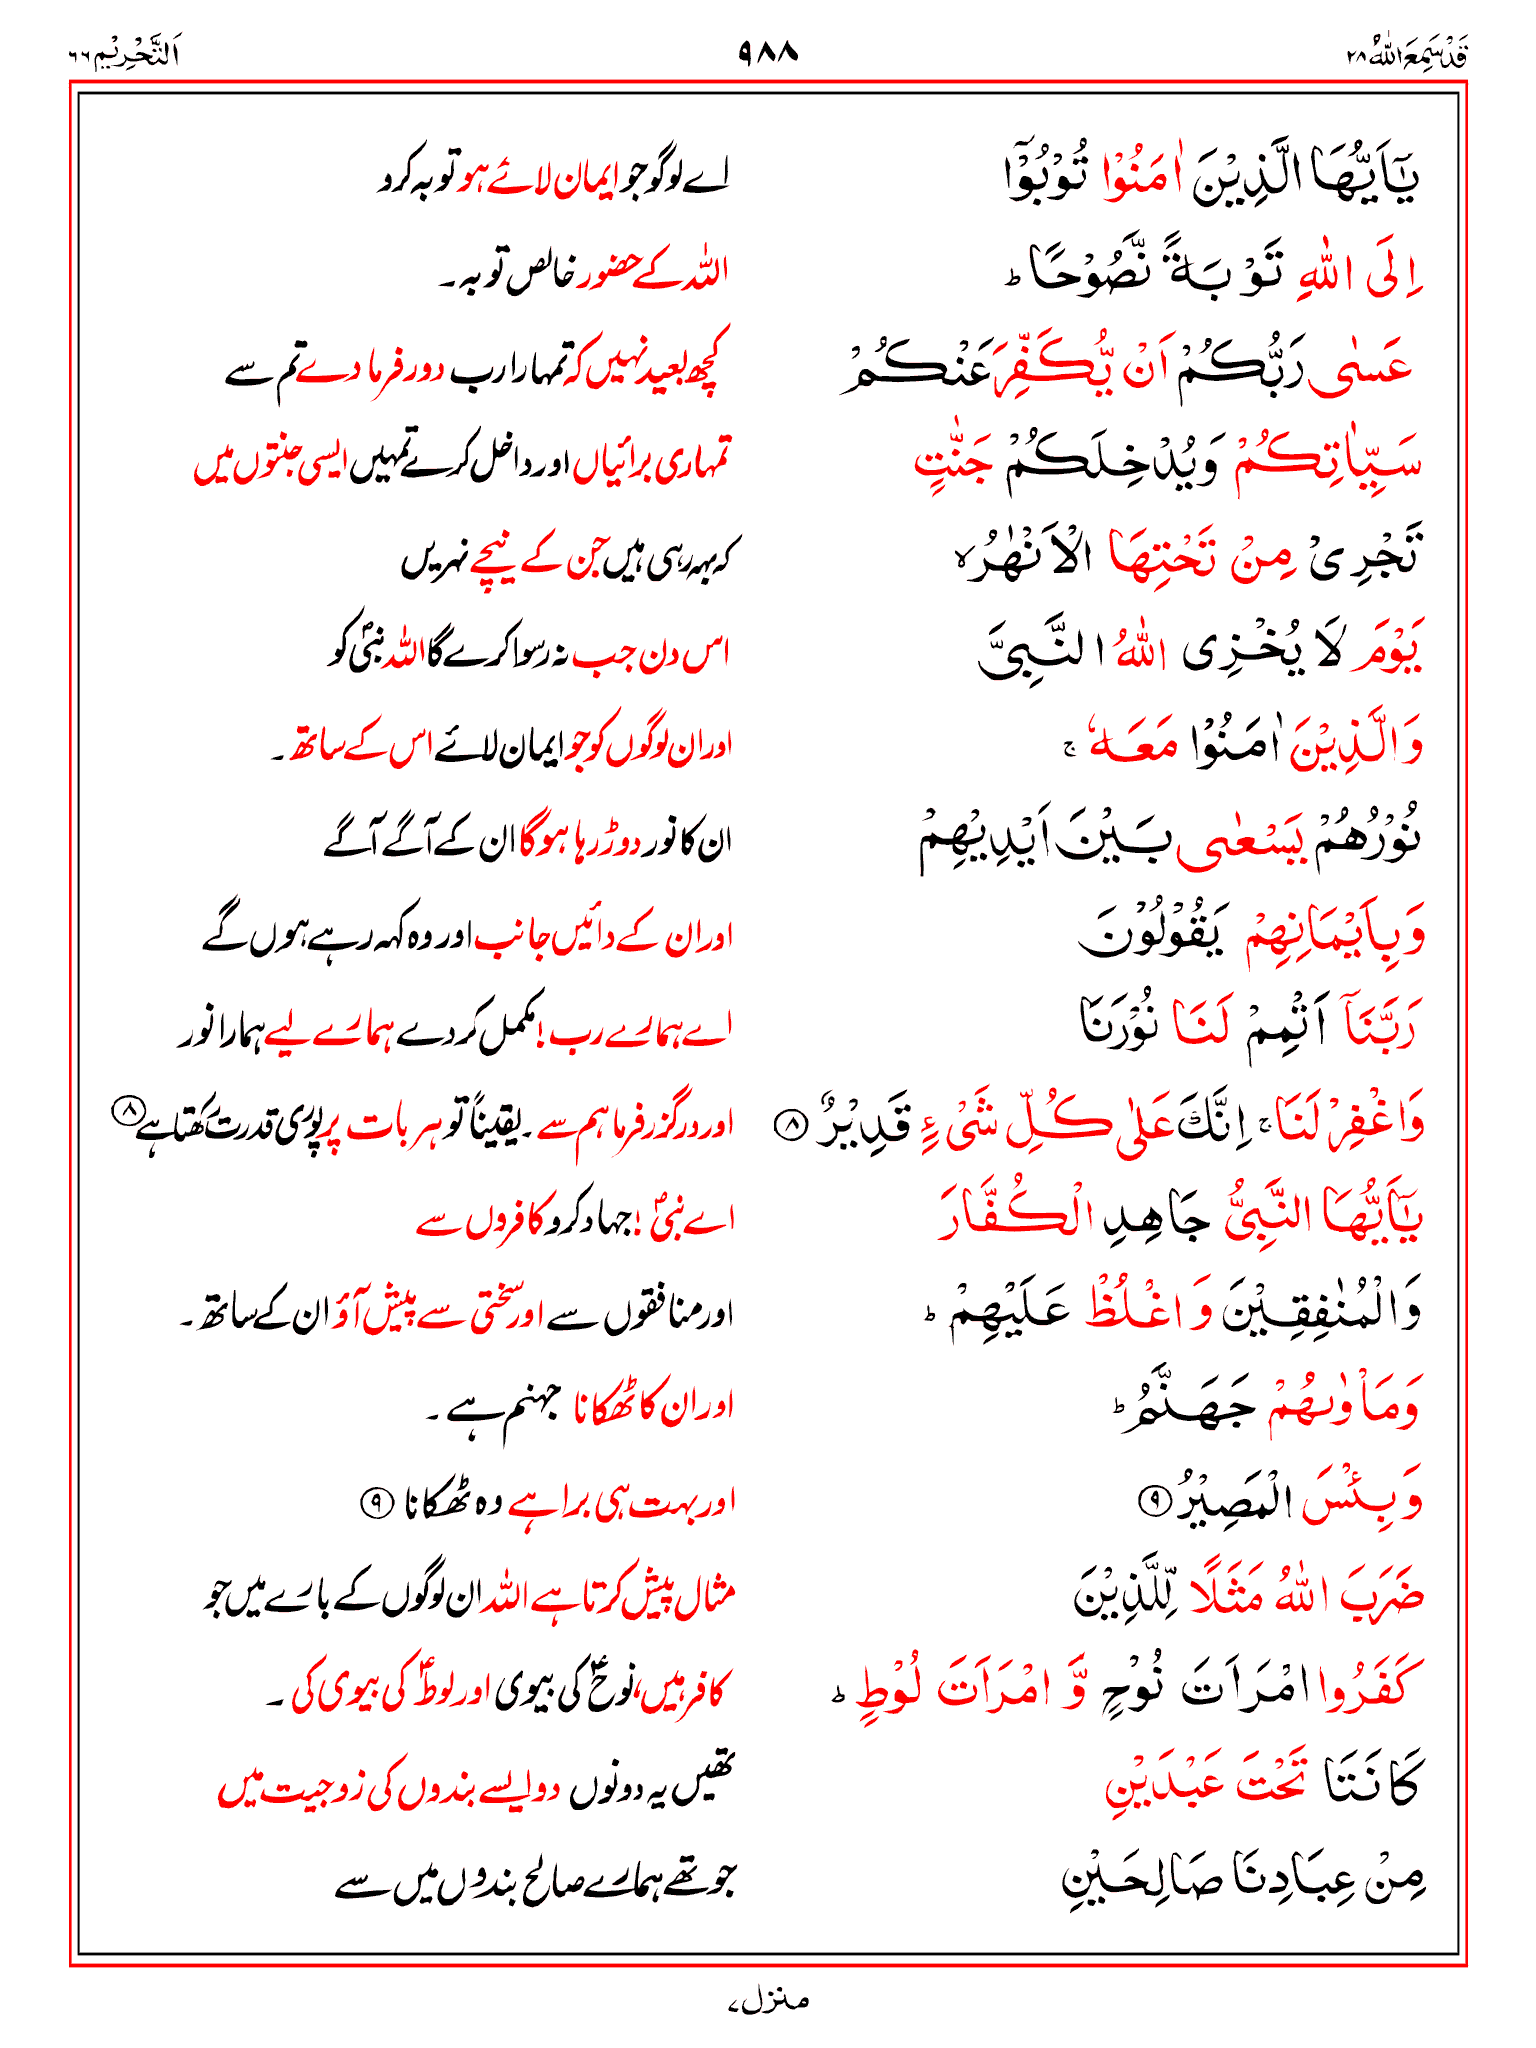 قَدْ سَمِعَ اللّٰهُ ۲۸ ۹۸۸ اَلتَّحْرِيْم ۶۶
يٰٓاَيُّهَا الَّذِيْنَ اٰمَنُوْا تُوْبُوْٓا اے لوگو جو ایمان لائے ہو توبہ کرو
اِلَى اللّٰهِ تَوْبَةً نَّصُوْحًا ؕ اللہ کے حضور خالص توبہ۔
عَسٰى رَبُّكُمْ اَنْ يُّكَفِّرَ عَنْكُمْ کچھ بعید نہیں کہ تمہارا رب دور فرما دے تم سے
سَيِّاٰتِكُمْ وَيُدْخِلَكُمْ جَنّٰتٍ تمہاری برائیاں اور داخل کرے تمہیں ایسی جنتوں میں
تَجْرِيْ مِنْ تَحْتِهَا الْاَنْهٰرُ ۙ کہ بہہ رہی ہیں جن کے نیچے نہریں
يَوْمَ لَا يُخْزِى اللّٰهُ النَّبِيَّ اس دن جب نہ رسوا کرے گا اللہ نبیؐ کو
وَالَّذِيْنَ اٰمَنُوْا مَعَهٗ ۚ اور ان لوگوں کو جو ایمان لائے اس کے ساتھ۔
نُوْرُهُمْ يَسْعٰى بَيْنَ اَيْدِيْهِمْ ان کا نور دوڑ رہا ہوگا ان کے آگے آگے
وَبِاَيْمَانِهِمْ يَقُوْلُوْنَ اور ان کے دائیں جانب اور وہ کہہ رہے ہوں گے
رَبَّنَآ اَتْمِمْ لَنَا نُوْرَنَا اے ہمارے رب! مکمل کردے ہمارے لیے ہمارا نور
وَاغْفِرْ لَنَا ۚ اِنَّكَ عَلٰى كُلِّ شَيْءٍ قَدِيْرٌ ۸ اور درگزر فرما ہم سے۔ یقیناً تو ہر بات پر پوری قدرت رکھتا ہے ۸
يٰٓاَيُّهَا النَّبِيُّ جَاهِدِ الْكُفَّارَ اے نبیؐ! جہاد کرو کافروں سے
وَالْمُنٰفِقِيْنَ وَاغْلُظْ عَلَيْهِمْ ؕ اور منافقوں سے اور سختی سے پیش آؤ ان کے ساتھ۔
وَمَاْوٰىهُمْ جَهَنَّمُ ؕ اور ان کا ٹھکانا جہنم ہے۔
وَبِئْسَ الْمَصِيْرُ ۹ اور بہت ہی برا ہے وہ ٹھکانا ۹
ضَرَبَ اللّٰهُ مَثَلًا لِّلَّذِيْنَ مثال پیش کرتا ہے اللہ ان لوگوں کے بارے میں جو
كَفَرُوا امْرَاَتَ نُوْحٍ وَّ امْرَاَتَ لُوْطٍ ؕ کافر ہیں، نوحؑ کی بیوی اور لوطؑ کی بیوی کی۔
كَانَتَا تَحْتَ عَبْدَيْنِ تھیں یہ دونوں دو ایسے بندوں کی زوجیت میں
مِنْ عِبَادِنَا صَالِحَيْنِ جو تھے ہمارے صالح بندوں میں سے
منزل ۷